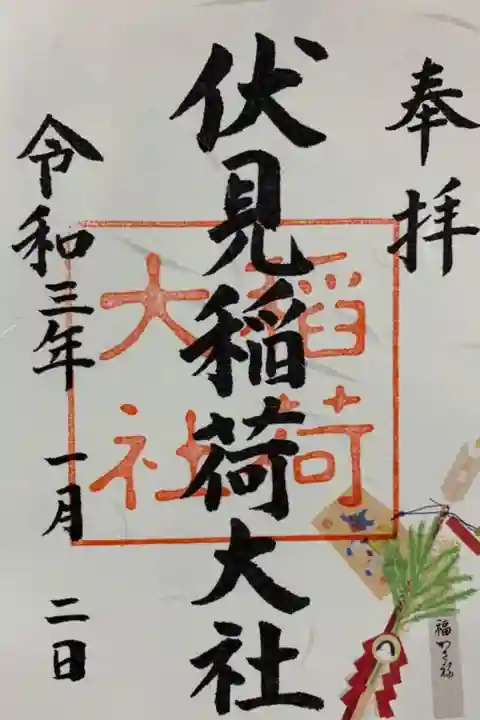 奉拝
伏見稲荷大社
稲荷
大社
令和三年 一月 二日